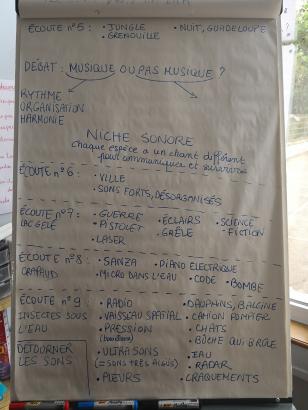 ÉCOUTE n°5 : • JUNGLE • NUIT, GUADELOUPE
• GRENOUILLE
DÉBAT : MUSIQUE OU PAS MUSIQUE ?
RYTHME
ORGANISATION
HARMONIE
NICHE SONORE
chaque espèce a un chant différent
pour communiquer et survivre
ÉCOUTE n°6 : • VILLE
• SONS FORTS, DÉSORGANISÉS
ÉCOUTE n°7 : • GUERRE • ÉCLAIRS • SCIENCE
LAC GELÉ • PISTOLET • GRÊLE -FICTION
• LASER
ÉCOUTE n°8 : • SANZA • PIANO ELECTRIQUE
CRAPAUD • MICRO DANS L'EAU • CODE • BOMBE
ÉCOUTE n°9 • RADIO • DAUPHINS, BALEINE
INSECTES SOUS • VAISSEAU SPATIAL • CAMION POMPIER
L'EAU • PRESSION • CHATS
• BÛCHE QUI BRÛLE
DÉTOURNER • ULTRASONS • EAU
LES SONS (= SONS TRÈS AIGUS) • RADAR
• PLEURS • CRAQUEMENTS